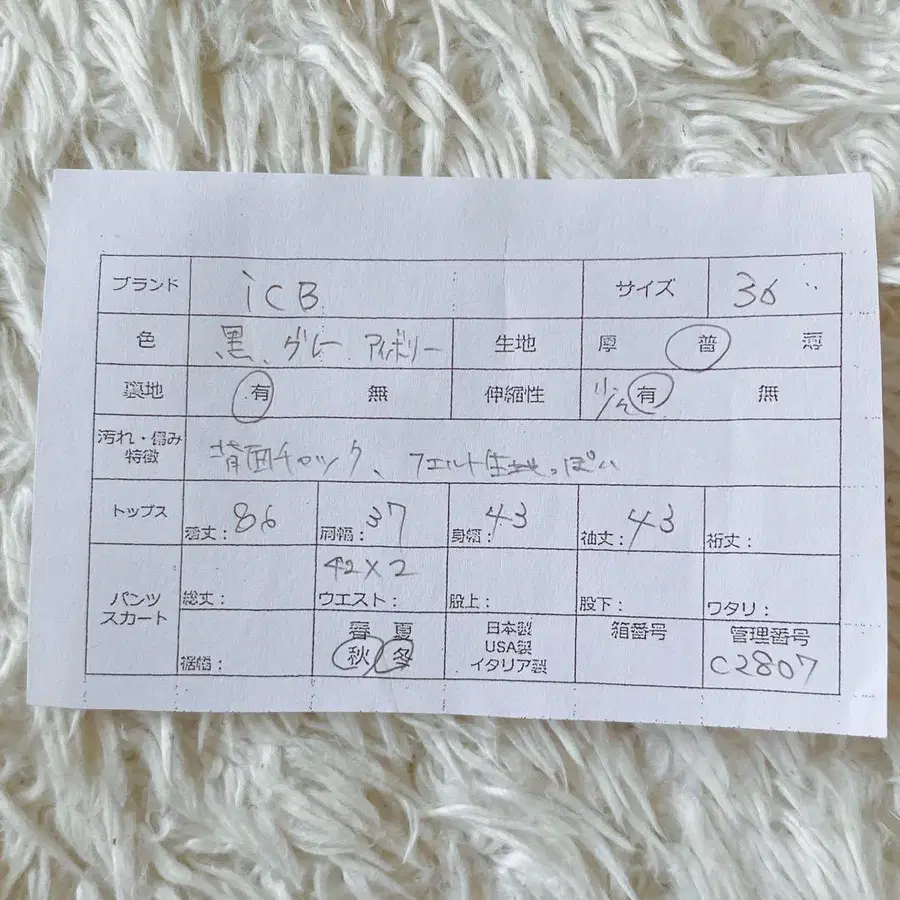 ブランド iCB サイズ 36
色 黒、グレー アイボリー 生地 厚 普 薄
裏地 有 無 伸縮性 有 無
汚れ・傷み
特徴 背面チャック、フェルト生地っぽい
トップス 着丈：86 肩幅：37 身幅：43 袖丈：43 裄丈：
パンツ
スカート 総丈： 42×2 ウエスト： 股上： 股下： ワタリ：
裾幅： 春 夏
秋 冬
日本製
USA製
イタリア製
箱番号
管理番号
C2807